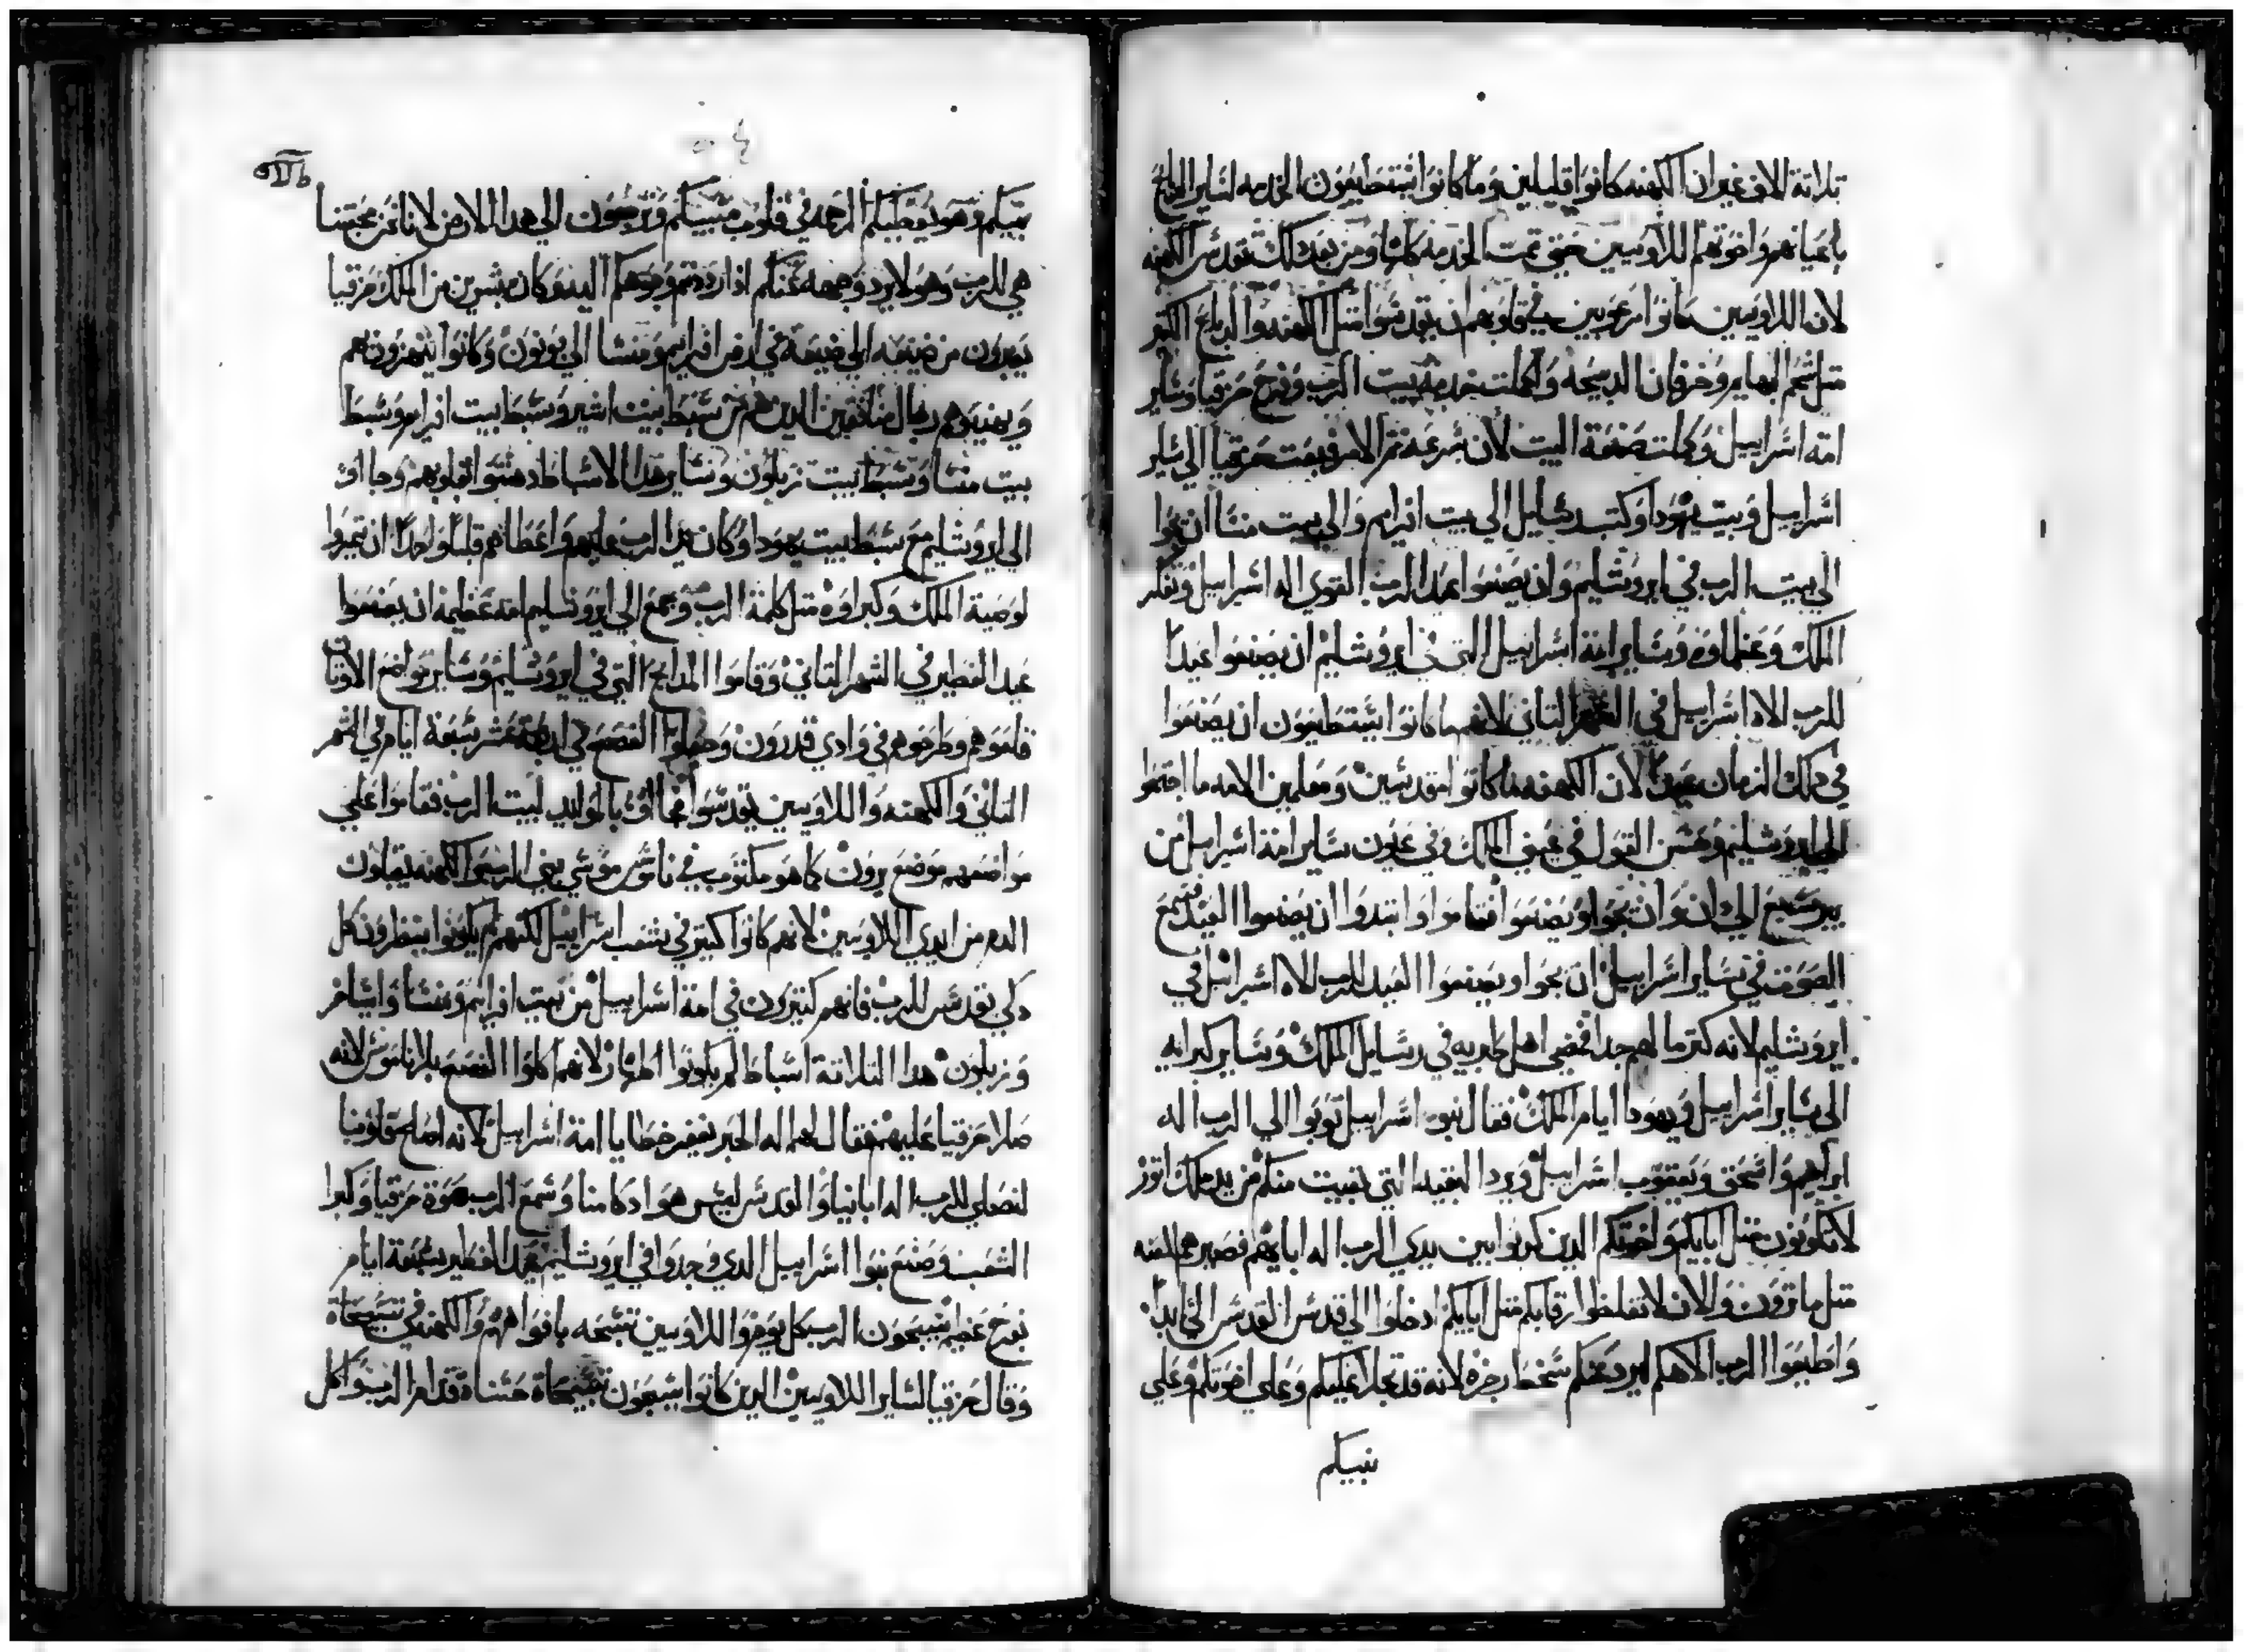 تلاتة الاف غير ان الكهنه كانوا قليلين وما كانوا يستطيعون الخدمه لساير الدبايح
باعيانهم واخوتهم اللاويين حتي تمت الخدمه كلها ومن بعد دلك تقدس الكهنه
لان اللاويين كانوا مرعوبين في قلوبهم ان يتقدسوا متل الكهنه والدبايح الكتير
متل شحم البهايم وخرفان الدبيحه وكملت خدمة بيت الرب وفرح حزقيا وساير
امة اسراييل وكملت صنعة البيت لان سرعة تم الامر وبعت حزقيا الي ساير
اسراييل وبيت يهودا وكتب رسايل الي بيت افرام والي بيت منسا ان يجوا
الي بيت الرب في ايروشليم وان يصنعوا عيد الرب القوي اله اسراييل وتفكر
الملك وعظماوه وساير امة اسراييل التي في ايروشليم ان يصنعوا عيداً
للرب الاه اسراييل في الشهر التاني لانهم ما كانوا يستطيعون ان يصنعوا
في دلك الزمان عيداً لان الكهنه ما كانوا متقدسين ومعلمين الامه ما اجتمعوا
الي ايروشليم وحسن القول في عيني الملك وفي عيون ساير امة اسراييل من
بيرسبع الي دان وان يجوا ويصنعوا فقاموا وابتدوا ان يصنعوا العيد فسمع
الصوت في ساير اسراييل ان يجوا ويصنعوا العيد للرب الاه اسراييل في
ايروشليم لانه كتر ما لهم جدا فمضي اهل الجريه في رسايل الملك وساير كبرايه
الي ساير اسراييل ويهودا ايام الملك فقال بنو اسراييل توبوا الي الرب اله
ابراهيم واسحق ويعقوب اسراييل ويرد البقيه التي بقيت منكم من يد ملك اتور
لا تكونون متل ابايكم واخوتكم الدين كربوا بين يدي الرب اله ابايهم فصيرهم لعنه
متل ما ترون والان لا تغلظوا رقابكم متل ابايكم ادخلوا الي قدس القدس الي ابداً
واطيعوا الرب الاهكم ليرد عنكم سخط رجزه لانه قد تجلا عليكم وعلي اخوتكم وعلي
بنيكم
بنيكم وهو يعطيكم الرحمه في قلوب مسبيكم وترجعون الي هدا الارض لاننا نحن محبتنا
هي للرب وهو لا يرد وجهه عنكم ادا رددتم وجوهكم اليه وكان مبشرين من الملك حزقيا
يعبرون من ضيعه الي ضيعة في ارض افرايم ومنسا الي زبولون وكانوا يتهزون بهم
ويهينوهم رجال منافقين الدين هم من سبط بيت اشير وسبط بيت افرام وسبط
بيت منسا وسبط بيت زبلون وساير هدا الاسباط ادهشوا قلوبهم وجااو
الي ايروشليم مع سبط بيت يهودا وكان يد الرب عليهم واعطاهم قلبا واحداً ان يتموا
لوصية الملك وكبراوه متل كلمة الرب وجمع الي ايروشليم امه عظيمه ان يصنعوا
عيد الفطير في الشهر التاني وقاموا المدابح التي في ايروشليم وساير مواضع الاوتان
قلعوهم وطرحوهم في وادي قدرون وعملوا الفصح في اربعة عشر سبعة ايام في الشهر
التاني والكهنه واللاويين تقدسوا فجااو بالمواليد لبيت الرب فقاموا علي
مواضعهم موضع يرون كما هو مكتوب في ناموس موسي نبي الرب والكهنه يقبلون
الدم من ايدي اللاويين لانهم كانوا كتير في شعب اسراييل لكنهم لم يكونوا ينتظرون كل
دكي يقدس للرب فانهم كتيرون في امة اسراييل من بيت افرايم ومنسا وايساخر
وزبلون هدا التلاتة اسباط لم يكونوا اطهار لانهم اكلوا الفصح بلا ناموس لانه
صلا حزقيا عليهم فقال لهم اله الخير يغفر خطايا امة اسراييل لانه اصلح قلوبنا
لنصلي للرب اله ابانيا والقدس ليس هو ادكا منا وسمع الرب صوة حزقيا وكبرا
الشعب وصنع بنوا اسراييل الدي وجدوا في ايروشليم عيد الفطير سبعة ايام
بفرح عظيم يسبحون الرب كل يوم واللاويين تسبحه بافواههم والكهنه في تسبيحاة
وقال حزقيا لساير اللاويين الدين كانوا يسبحون تسبيحاة حسناة قدام الرب واكل